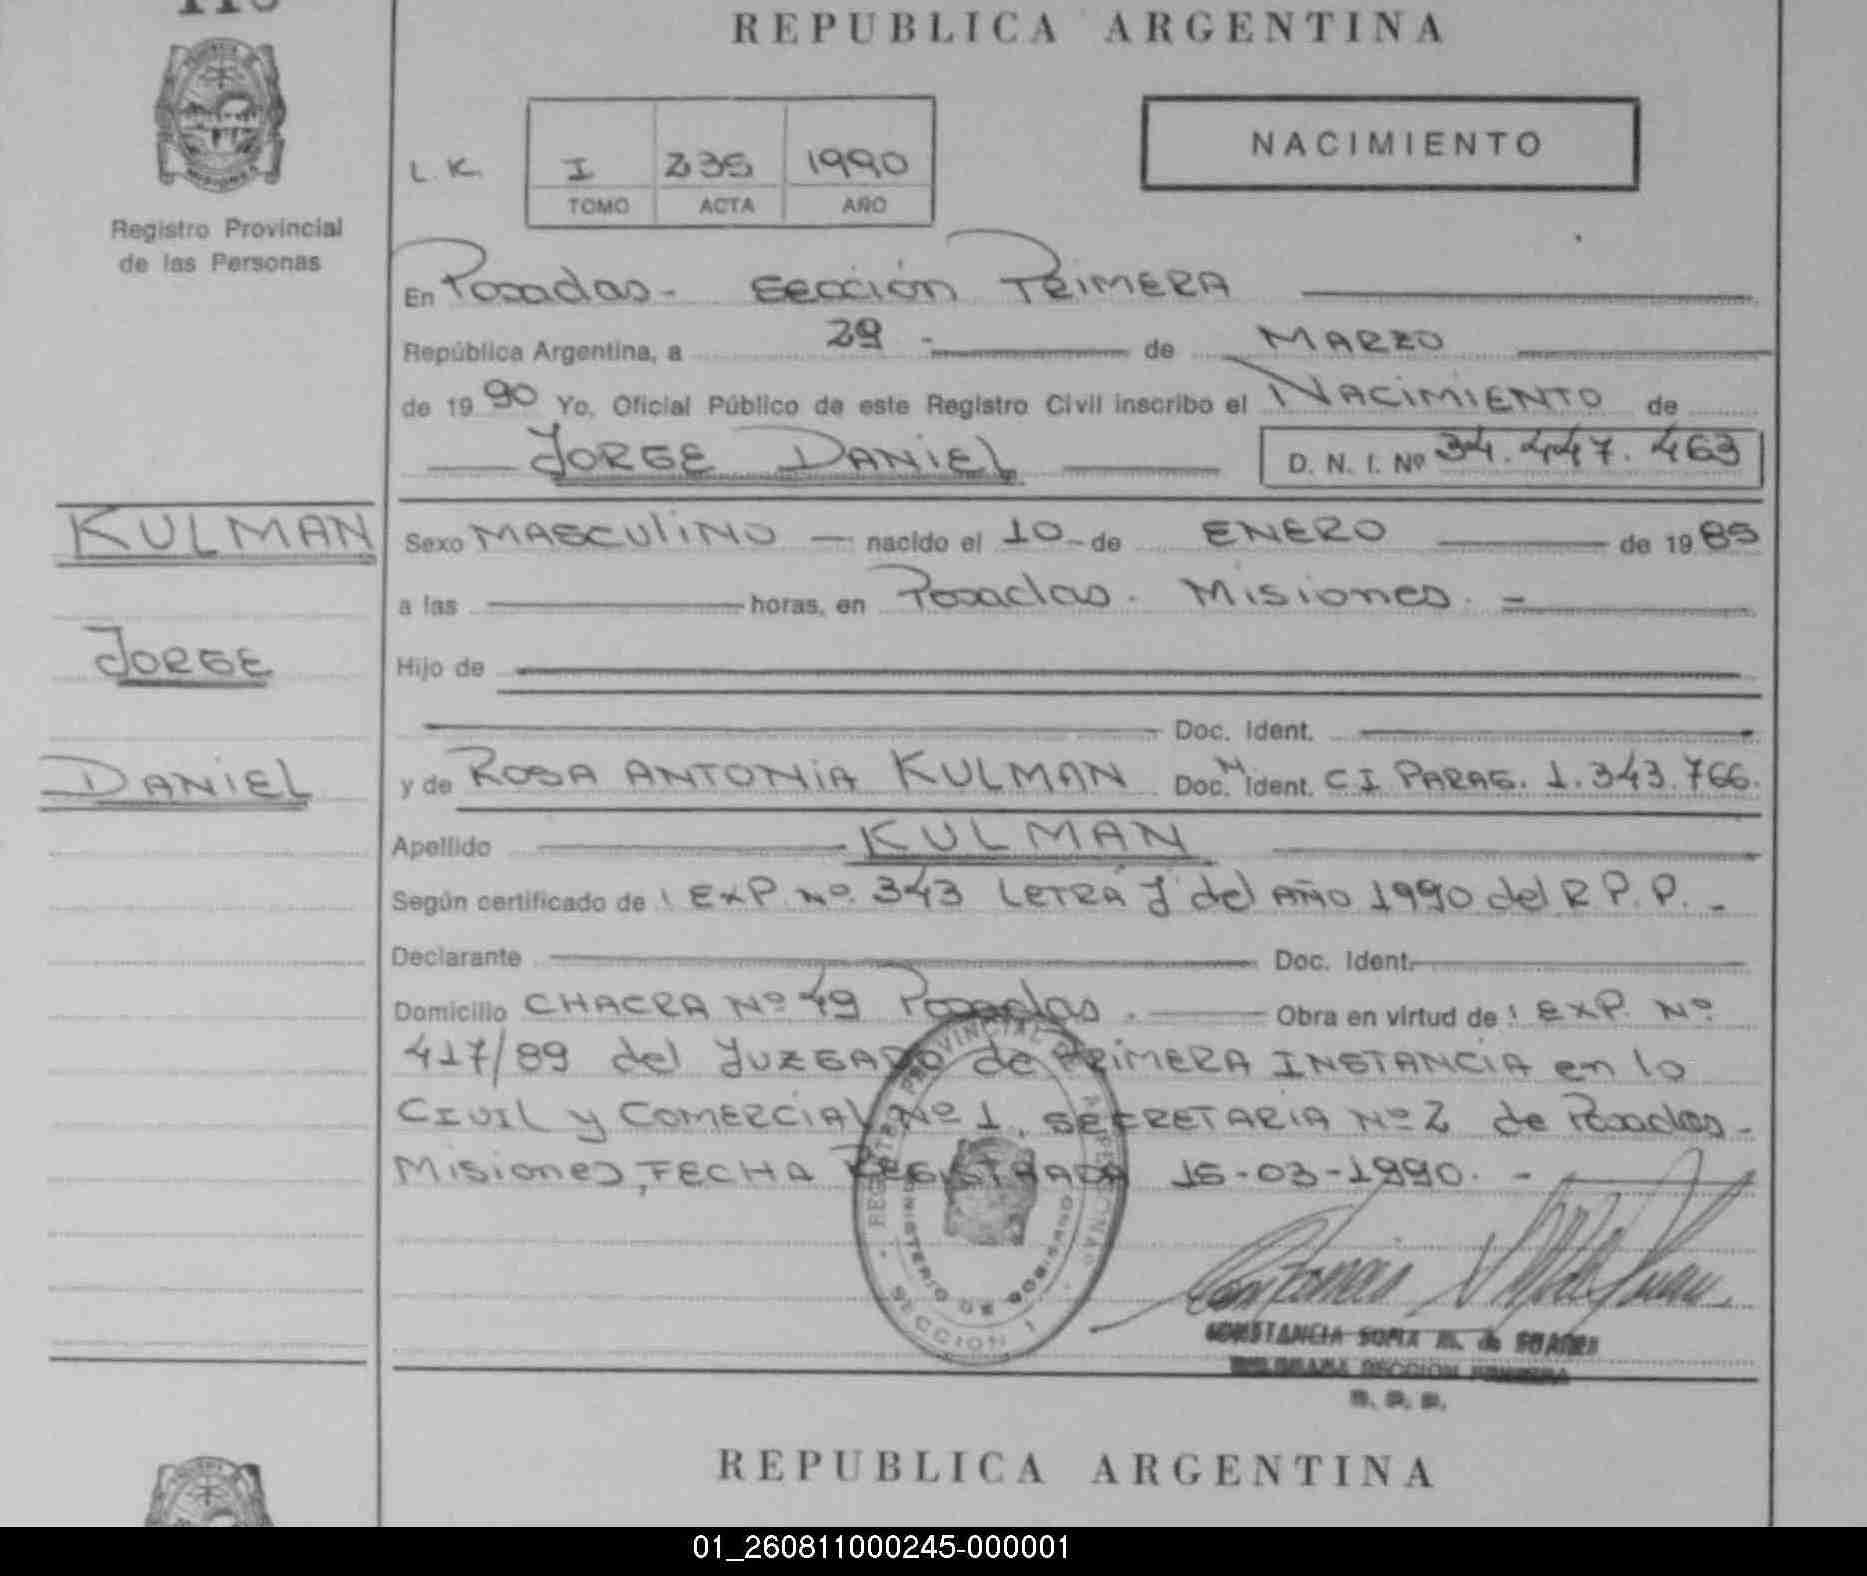 REPUBLICA ARGENTINA
NACIMIENTO
L. K. I 235 1990
TOMO ACTA AÑO
Registro Provincial
de las Personas
En Posadas - Sección PRIMERA
República Argentina, a 29 - de MARZO
de 19 90 Yo, Oficial Público de este Registro Civil inscribo el NACIMIENTO de
JORGE DANIEL D. N. I. Nº 34.447.463
KULMAN
JORGE
DANIEL
Sexo MASCULINO — nacido el 10 - de ENERO de 19 85
a las horas, en Posadas. Misiones. -
Hijo de
Doc. Ident.
y de ROSA ANTONIA KULMAN Doc. Nº Ident. CI PARAG. 1.343.766.
Apellido KULMAN
Según certificado de : EXP. Nº. 343 LETRA J del AÑO 1990 del R.P.P. -
Declarante Doc. Ident.
Domicilio CHACRA Nº 49 Posadas. Obra en virtud de : EXP. Nº
417/89 del JUZGADO de PRIMERA INSTANCIA en lo
CIVIL y COMERCIAL Nº 1, SECRETARIA Nº 2 de Posadas -
Misiones, FECHA REGISTRADA 15-03-1990. -
REGISTRO PROVINCIAL DE LAS PERSONAS
MINISTERIO DE GOBIERNO
SECCION 1
CONSTANCIA SOFIA M. de
SECCION PRIMERA
R. P. P.
REPUBLICA ARGENTINA
01_260811000245-000001